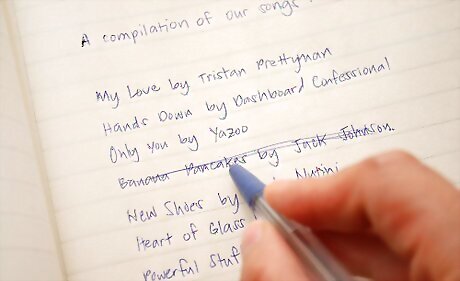 A compilation of our songs.
My Love by Tristan Prettyman
Hands Down by Dashboard Confessional
Only You by Yazoo
Banana Pancakes by Jack Johnson.
New Shoes by Nutini
Heart of Glass
Powerful Stuf